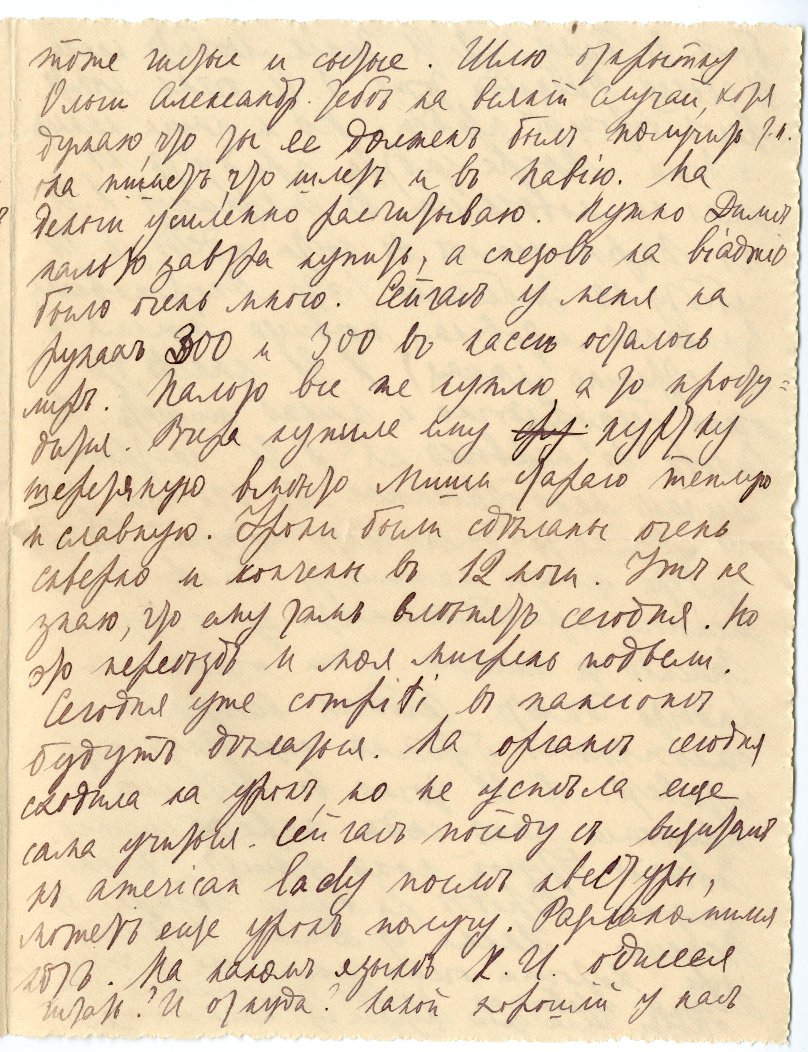 тоже чистые и сытые. Шлю открытку
Ольги Александр. тебѣ на всякій случай, хотя
думаю, что ты ее долженъ былъ получить т.к.
она пишетъ что шлетъ и въ Павію. На
деньги усиленно расчитываю. Нужно Димѣ
пальто завтра купить, а расходовъ на viaggio
было очень много. Сейчасъ у меня на
рукахъ 300 и 300 въ кассѣ осталось
лиръ. Пальто все же куплю а то просту=
дится. Вчера купила ему куртку
шерстяную вмѣсто Мишиной старой теплую
и славную. Уроки были сдѣланы очень
скверно и кончены въ 12 ночи. Ужъ не
знаю, что ему тамъ влѣпятъ сегодня. Но
это переѣздъ и моя мигрень подвели.
Сегодня уже compiti въ пансіонѣ
будутъ дѣлаться. На органъ сегодня
сходила на урокъ, но не успѣла еще
сама учиться. Сейчасъ пойду съ визитомъ
къ american lady послѣ квестуры,
можетъ еще урокъ получу. Раззнакомился
котъ. На какомъ языкѣ К. И.
И откуда? Какой хорошій у насъ